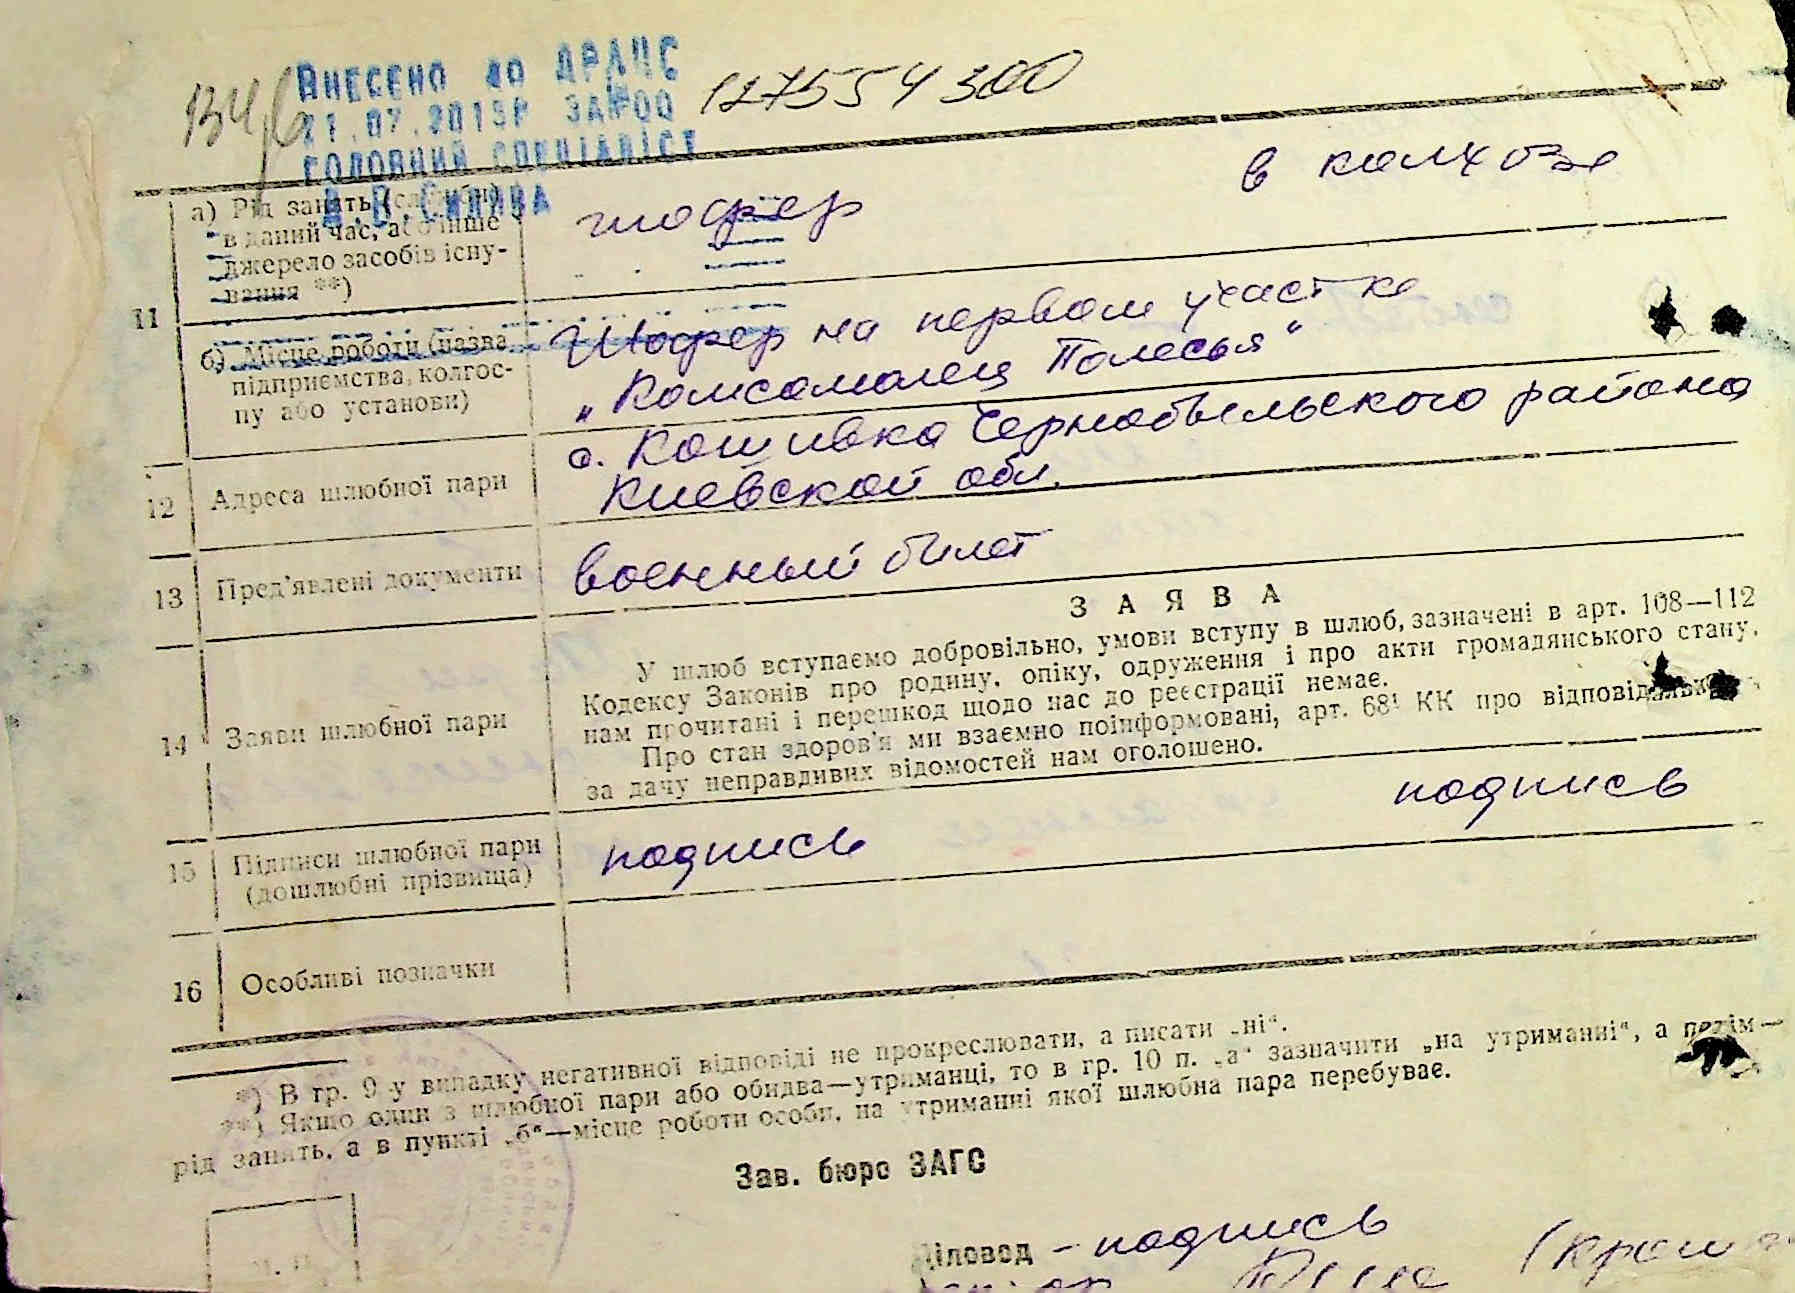 ВНЕСЕНО до ДРАЦС
21.07.2015р
ГОЛОВНИЙ СПЕЦІАЛІСТ
127554300
11
а) Рід занять (служби)
в даний час, або інше
джерело засобів існу-
вання **)
шофер
в колхозе
б) Місце роботи (назва
підприємства, колгос-
пу або установи)
Шофер на первом участке
„Комсомолец Полесья"
12
Адреса шлюбної пари
с. Кошивка Чернобыльского района
Киевской обл.
13
Пред'явлені документи
военный билет
14
Заяви шлюбної пари
ЗАЯВА
У шлюб вступаємо добровільно, умови вступу в шлюб, зазначені в арт. 108—112
Кодексу Законів про родину, опіку, одруження і про акти громадянського стану,
нам прочитані і перешкод щодо нас до реєстрації немає.
Про стан здоров'я ми взаємно поінформовані, арт. 68¹ КК про відповідальність
за дачу неправдивих відомостей нам оголошено.
15
Підписи шлюбної пари
(дошлюбні прізвища)
подпись
подпись
16
Особливі позначки
*) В гр. 9 у випадку негативної відповіді не прокреслювати, а писати „ні".
**) Якщо один з шлюбної пари або обидва—утриманці, то в гр. 10 п. „а" зазначити „на утриманні", а потім—
рід занять, а в пункті „б"—місце роботи особи, на утриманні якої шлюбна пара перебуває.
Зав. бюро ЗАГС
Діловод - подпись